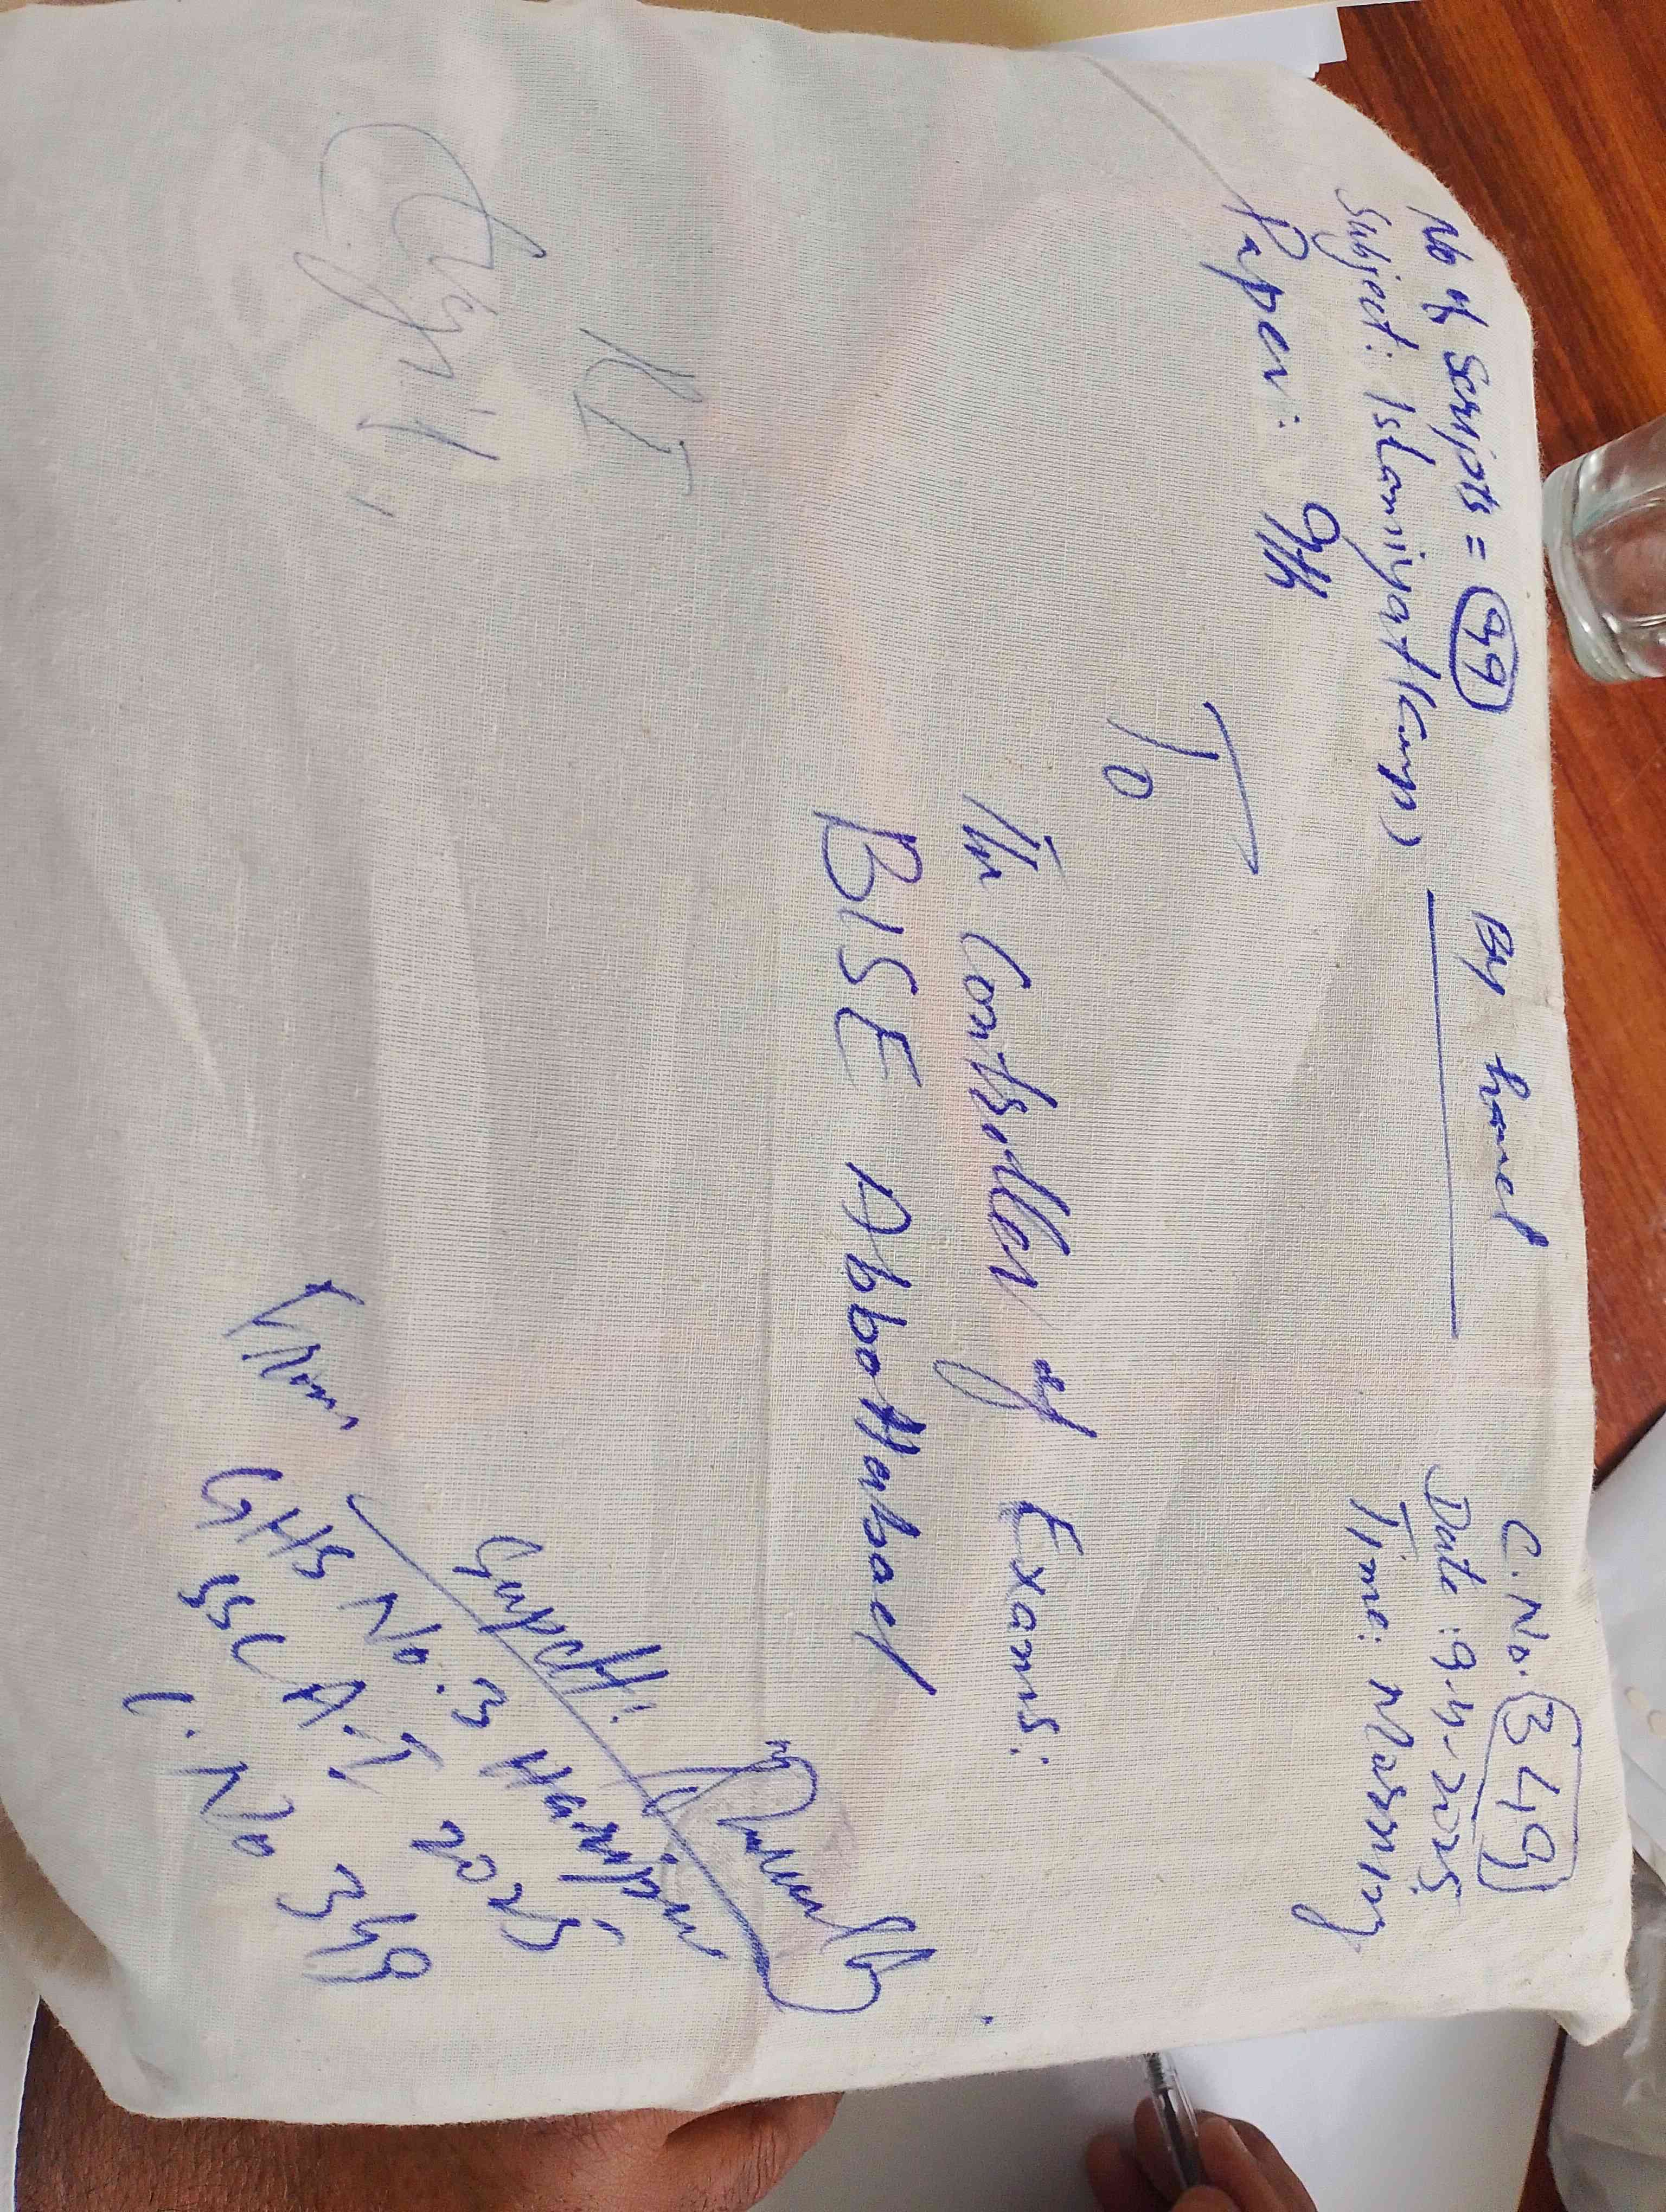 No of Scripts = 99
Subject: Islamiyat (Comp)
Paper: 9th
By hand
C. No. 349
Date: 9-4-2025
Time: Morning
To
The Controller of Exams:
BISE Abbottabad
From
Supdtt:
GHS No. 3 Haripur
SSC A-I, 2025
C. No 349